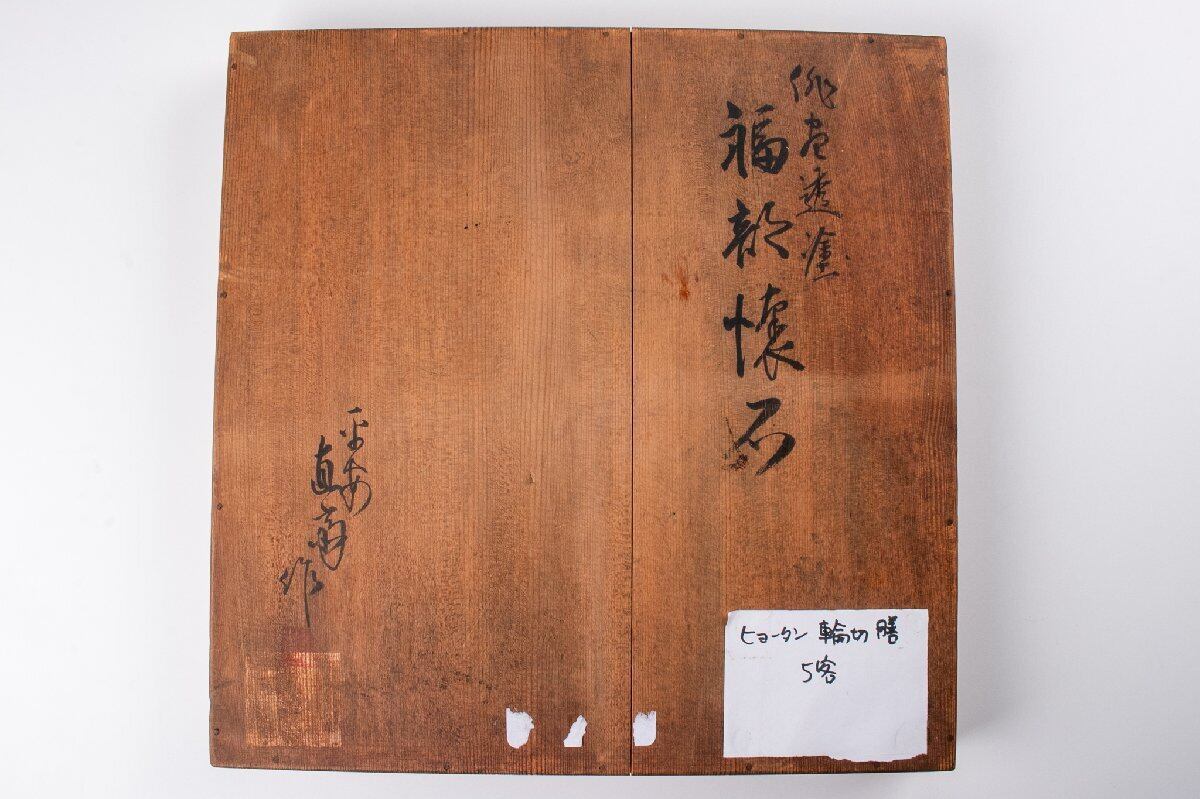 俳画透塗
福部懐石
平安
直斎
作
ヒョータン 輪切 膳
5客